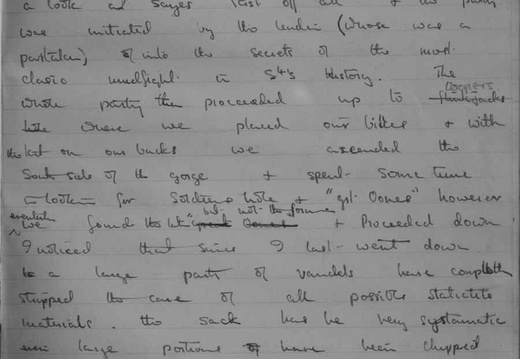 a look at Sayes last of all & the party
was initiated by the leader (whose was a
partaken) of into the secrets of the most
classic mudfight in S4's History. The
whole party then proceeded up to Coopers
hole where we placed our bikes & with
the kit on our backs we ascended the
South side of the gorge & spent some time
in looking for Soldiers hole & "gt. Oones" however
eventually we found the latter but not the former & Proceeded down
I noticed that since I last went down
a large party of vandals have completely
stripped the cave of all possible stalactite
materials. the sack has be very systematic
even large portions have been chipped